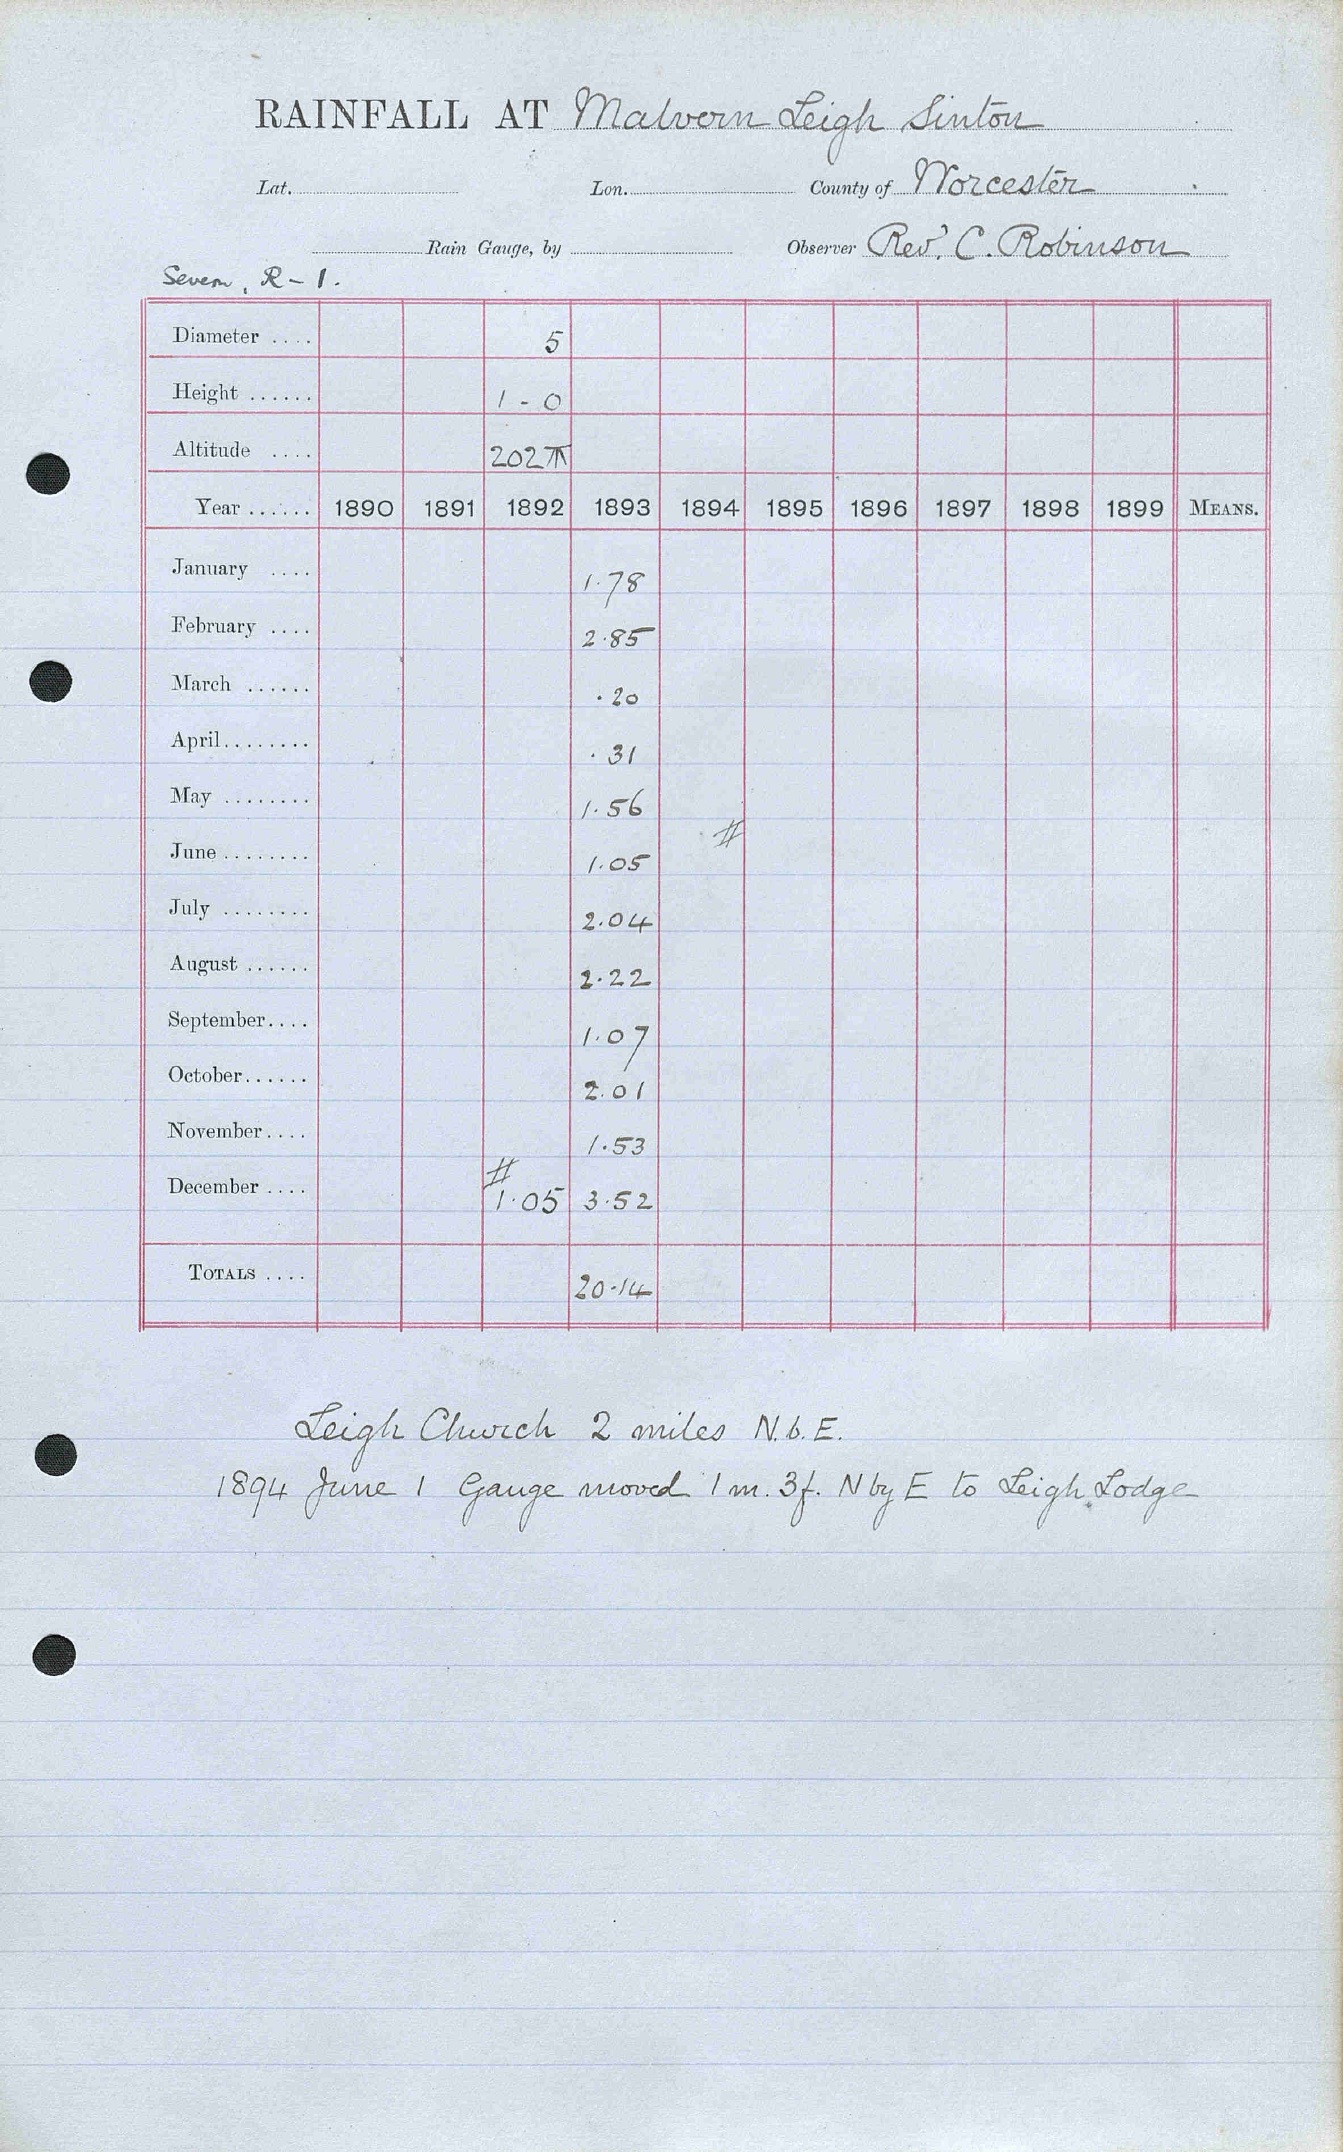 RAINFALL AT Malvern Leigh Sinton
Lat. Lon. County of Worcester
Rain Gauge, by Observer Revd. C. Robinson
Severn, R - 1.
Diameter .... 5
Height ...... 1 - 0
Altitude .... 202
Year ...... 1890 1891 1892 1893 1894 1895 1896 1897 1898 1899 MEANS.
January .... 1.78
February .... 2.85
March ...... .20
April ........ .31
May ........ 1.56
#
June ........ 1.05
July ........ 2.04
August ...... 2.22
September .... 1.07
October ...... 2.01
November .... 1.53
#
December .... 1.05 3.52
TOTALS .... 20.14
Leigh Church 2 miles N.b.E.
1894 June 1 Gauge moved 1 m. 3f. N by E to Leigh Lodge